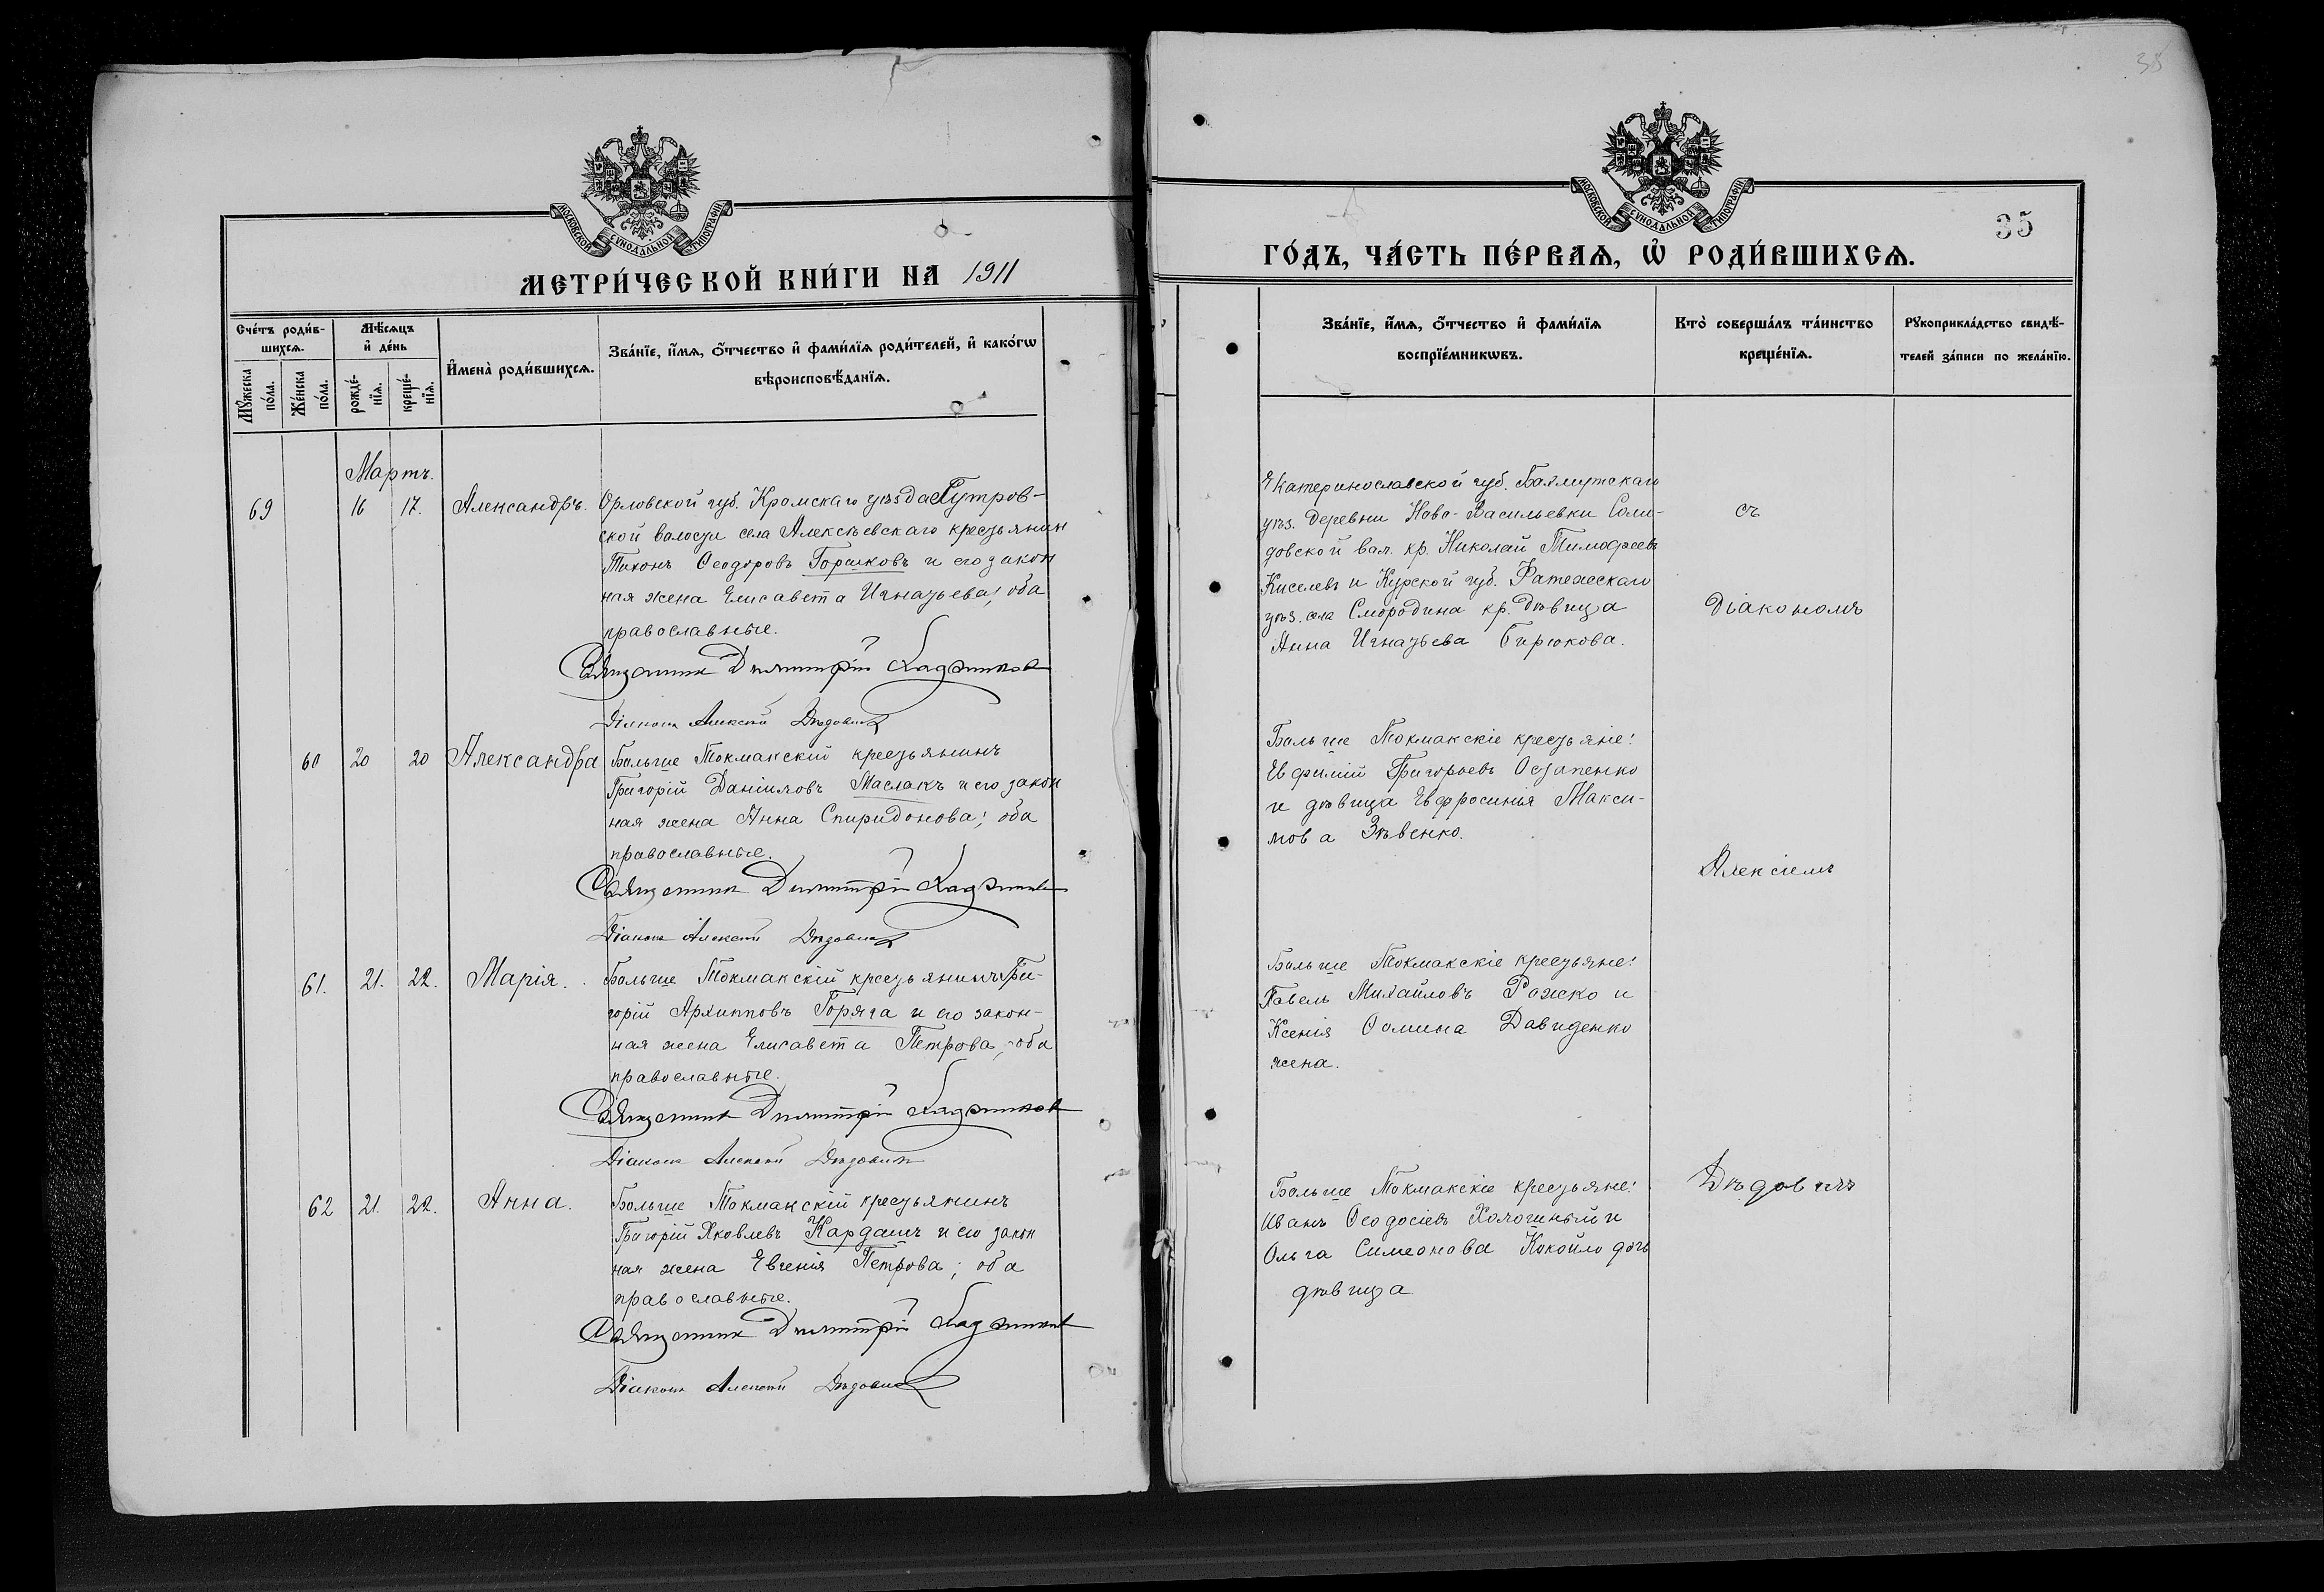 38
МОСКОВСКОЙ СУНОДАЛЬНОЙ ТИПОГРАФІИ
МЕТРИ́ЧЕСКОЙ КНИ́ГИ НА 1911
Сче́тъ роди́в-
шихсѧ.
Мѣ́сѧцъ
и҆ де́нь
Мꙋ́жеска
по́ла.
Же́нска
по́ла.
рожде́-
нїѧ.
креще́-
нїѧ.
И҆мена̀ роди́вшихсѧ.
Зва́нїе, и҆́мѧ, ѻ҆́тчество и҆ фами́лїѧ роди́телей, и҆ како́гѡ
вѣроисповѣ́данїѧ.
Мартъ.
69 16 17. Александръ. Орловской губ. Кромскаго уѣзда Гутров-
ской волости села Алексѣевскаго крестьянин
Тихонъ Ѳеодоровъ Горшковъ и его закон
ная жена Елисавета Игнатьева; оба
православные.
Священник Димитрій
Діаконъ Алексій Дѣдович
60 20 20 Александра Больше Токмакскій крестьянинъ
Григорій Даніиловъ Маслакъ и его закон
ная жена Анна Спиридонова; оба
православные.
Священник Димитрій
Діаконъ Алексій Дѣдович
61. 21. 22. Марія. Больше Токмакскій крестьянинъ Гри-
горій Архипповъ Горяга и его закон-
ная жена Елисавета Петрова; оба
православные.
Священник Димитрій
Діаконъ Алексій Дѣдович
62 21. 22. Анна. Больше Токмакскій крестьянинъ
Григорій Яковлевъ Кардашъ и его закон
ная жена Евгенія Петрова; оба
православные.
Священник Димитрій
Діаконъ Алексій Дѣдович
МОСКОВСКОЙ СУНОДАЛЬНОЙ ТИПОГРАФІИ
35
ГО́ДЪ, ЧА́СТЬ ПЕ́РВАѦ, Ѽ РОДИ́ВШИХСѦ.
Зва́нїе, и҆́мѧ, ѻ҆́тчество и҆ фами́лїѧ
воспрїе́мникѡвъ.
Кто̀ соверша́лъ та́инство
креще́нїѧ.
Рꙋкоприкла́дство свидѣ́-
телей за́писи по жела́нїю.
Екатеринославской губ. Бахмутскаго
уѣз. деревни Ново-Васильевки Соли-
довской вол. кр. Николай Тимоѳеевъ
Киселевъ и Курской губ. Фатежскаго
уѣз. села Смородина кр. дѣвица
Анна Игнатьева Бирюкова.
Больше Токмакскіе крестьяне:
Евфимій Григорьевъ Остапенко
и дѣвица Евфросинія Макси-
мова Зѣвенко.
Больше Токмакскіе крестьяне:
Павелъ Михайловъ Рожко и
Ксенія Ѳомина Давиденко
жена.
Больше Токмакскіе крестьяне:
Иванъ Ѳеодосіевъ и
Ольга Симеонова Кокойло дочь
дѣвица
съ
Діакономъ
Алексіемъ
Дѣдовичъ